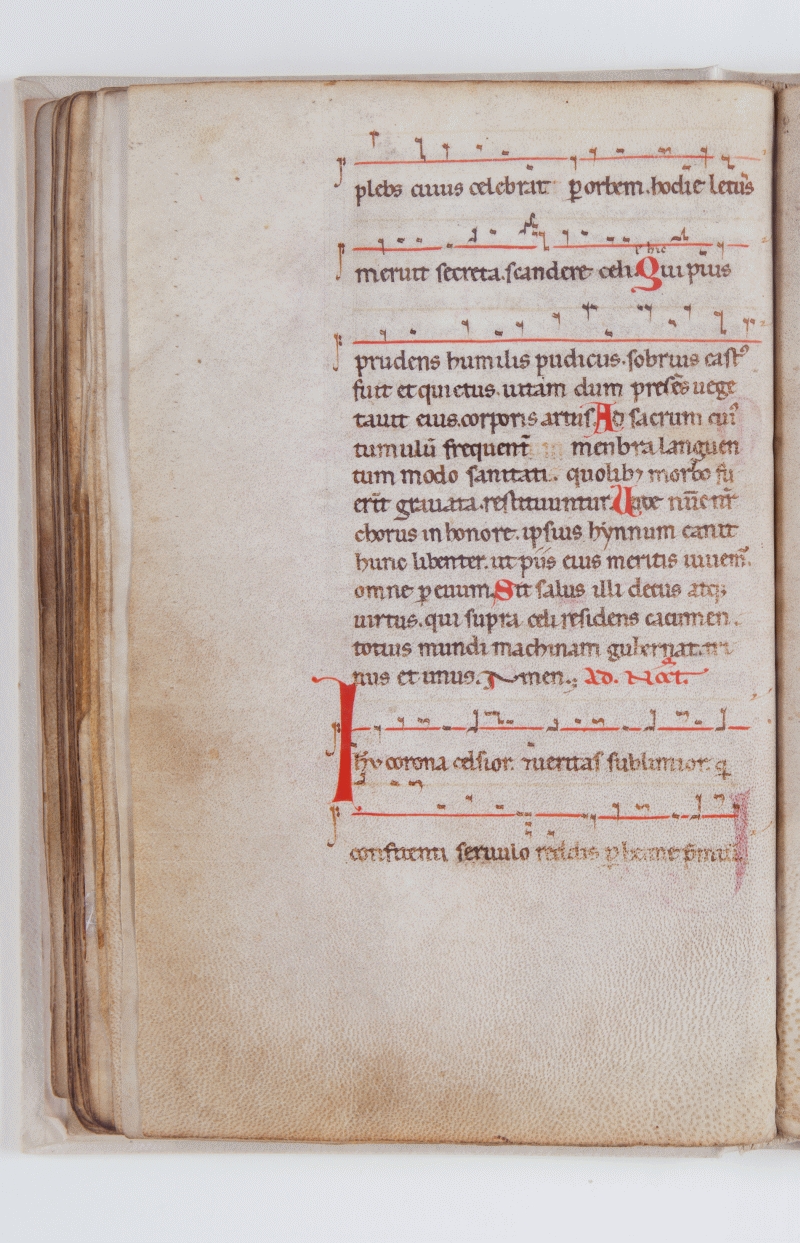 plebs cuius celebrat ꝑ orbem. hodie letus
meruit secreta. scandere celi. Qui pius
hic
prudens humilis pudicus. sobrius castꝰ
fuit et quietus. uitam dum presēs uege
tauit eius. corporis artus. Ad sacrum cuiꝰ
tumulū frequent̄ menbra languen
tum modo sanitati. quolibꝫ morbo fu
erīt grauata. restituuntur. Unde
chorus in honore. ipsius hỳnnum canit
hunc libenter. ut piis eius meritis iuuem̄.
omne ꝑ euum. Sit salus illi decus atqꝫ
uirtus. qui supra celi residens cacumen.
totius mundi machinam gubernat. tri
nus et unus. Amen. Ad. Noct.
Ihū corona celsior. ueritas sublimior. q̄
confitenti seruulo reddis